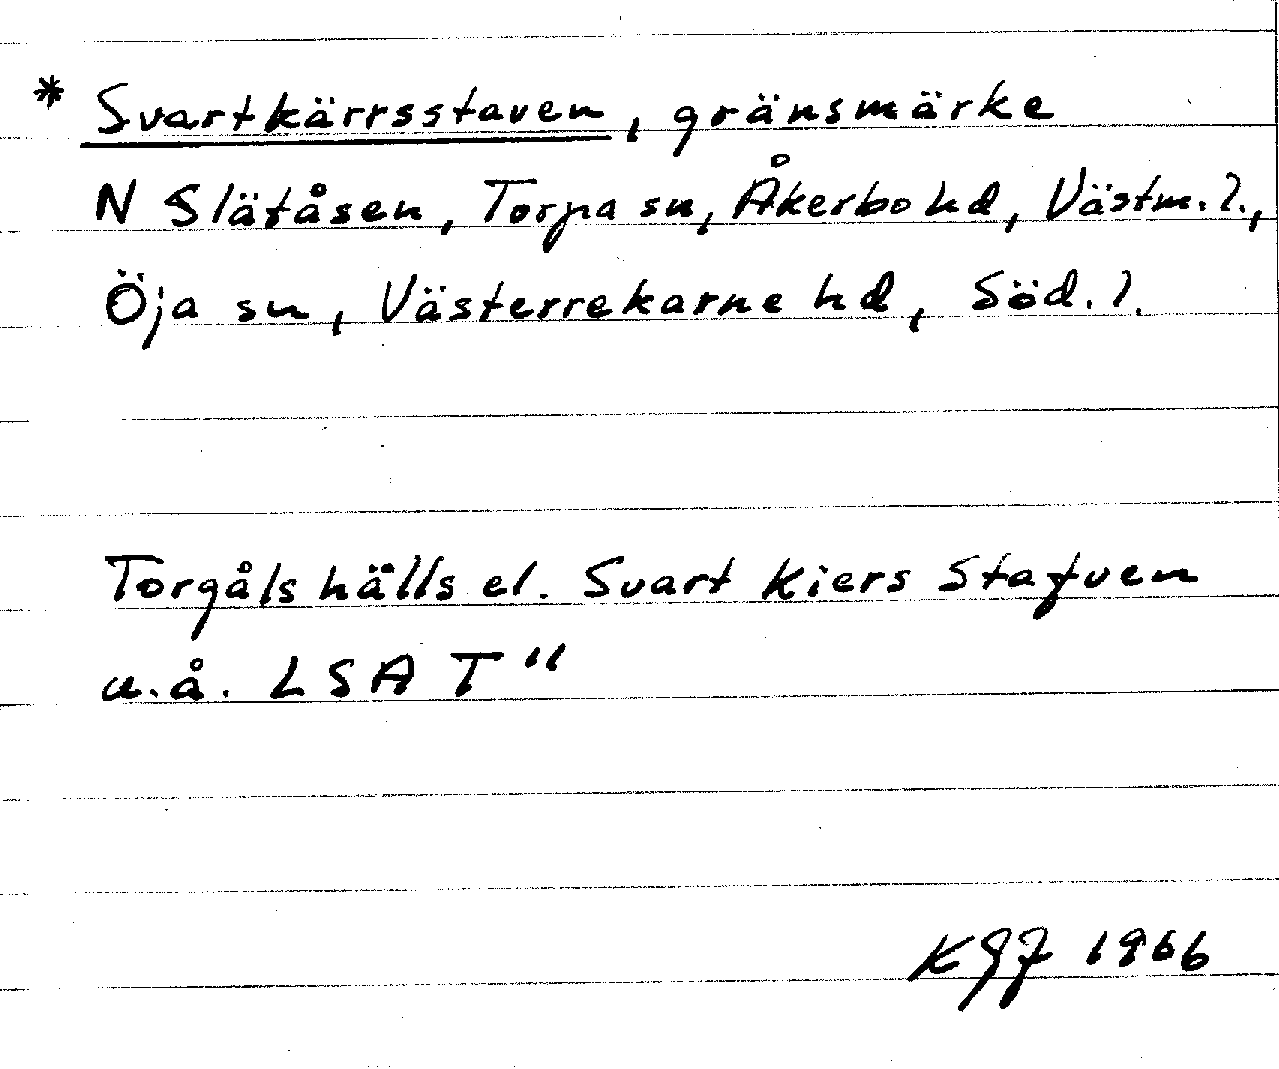 * Svartkärrsstaven, gränsmärke
N Slätåsen, Torpa sn, Åkerbo hd, Västm. l.,
Öja sn, Västerrekarne hd, Söd. l.
Torgåls hälls el. Svart Kiers Stafven
u.å. LSA T"
KGJ 1966